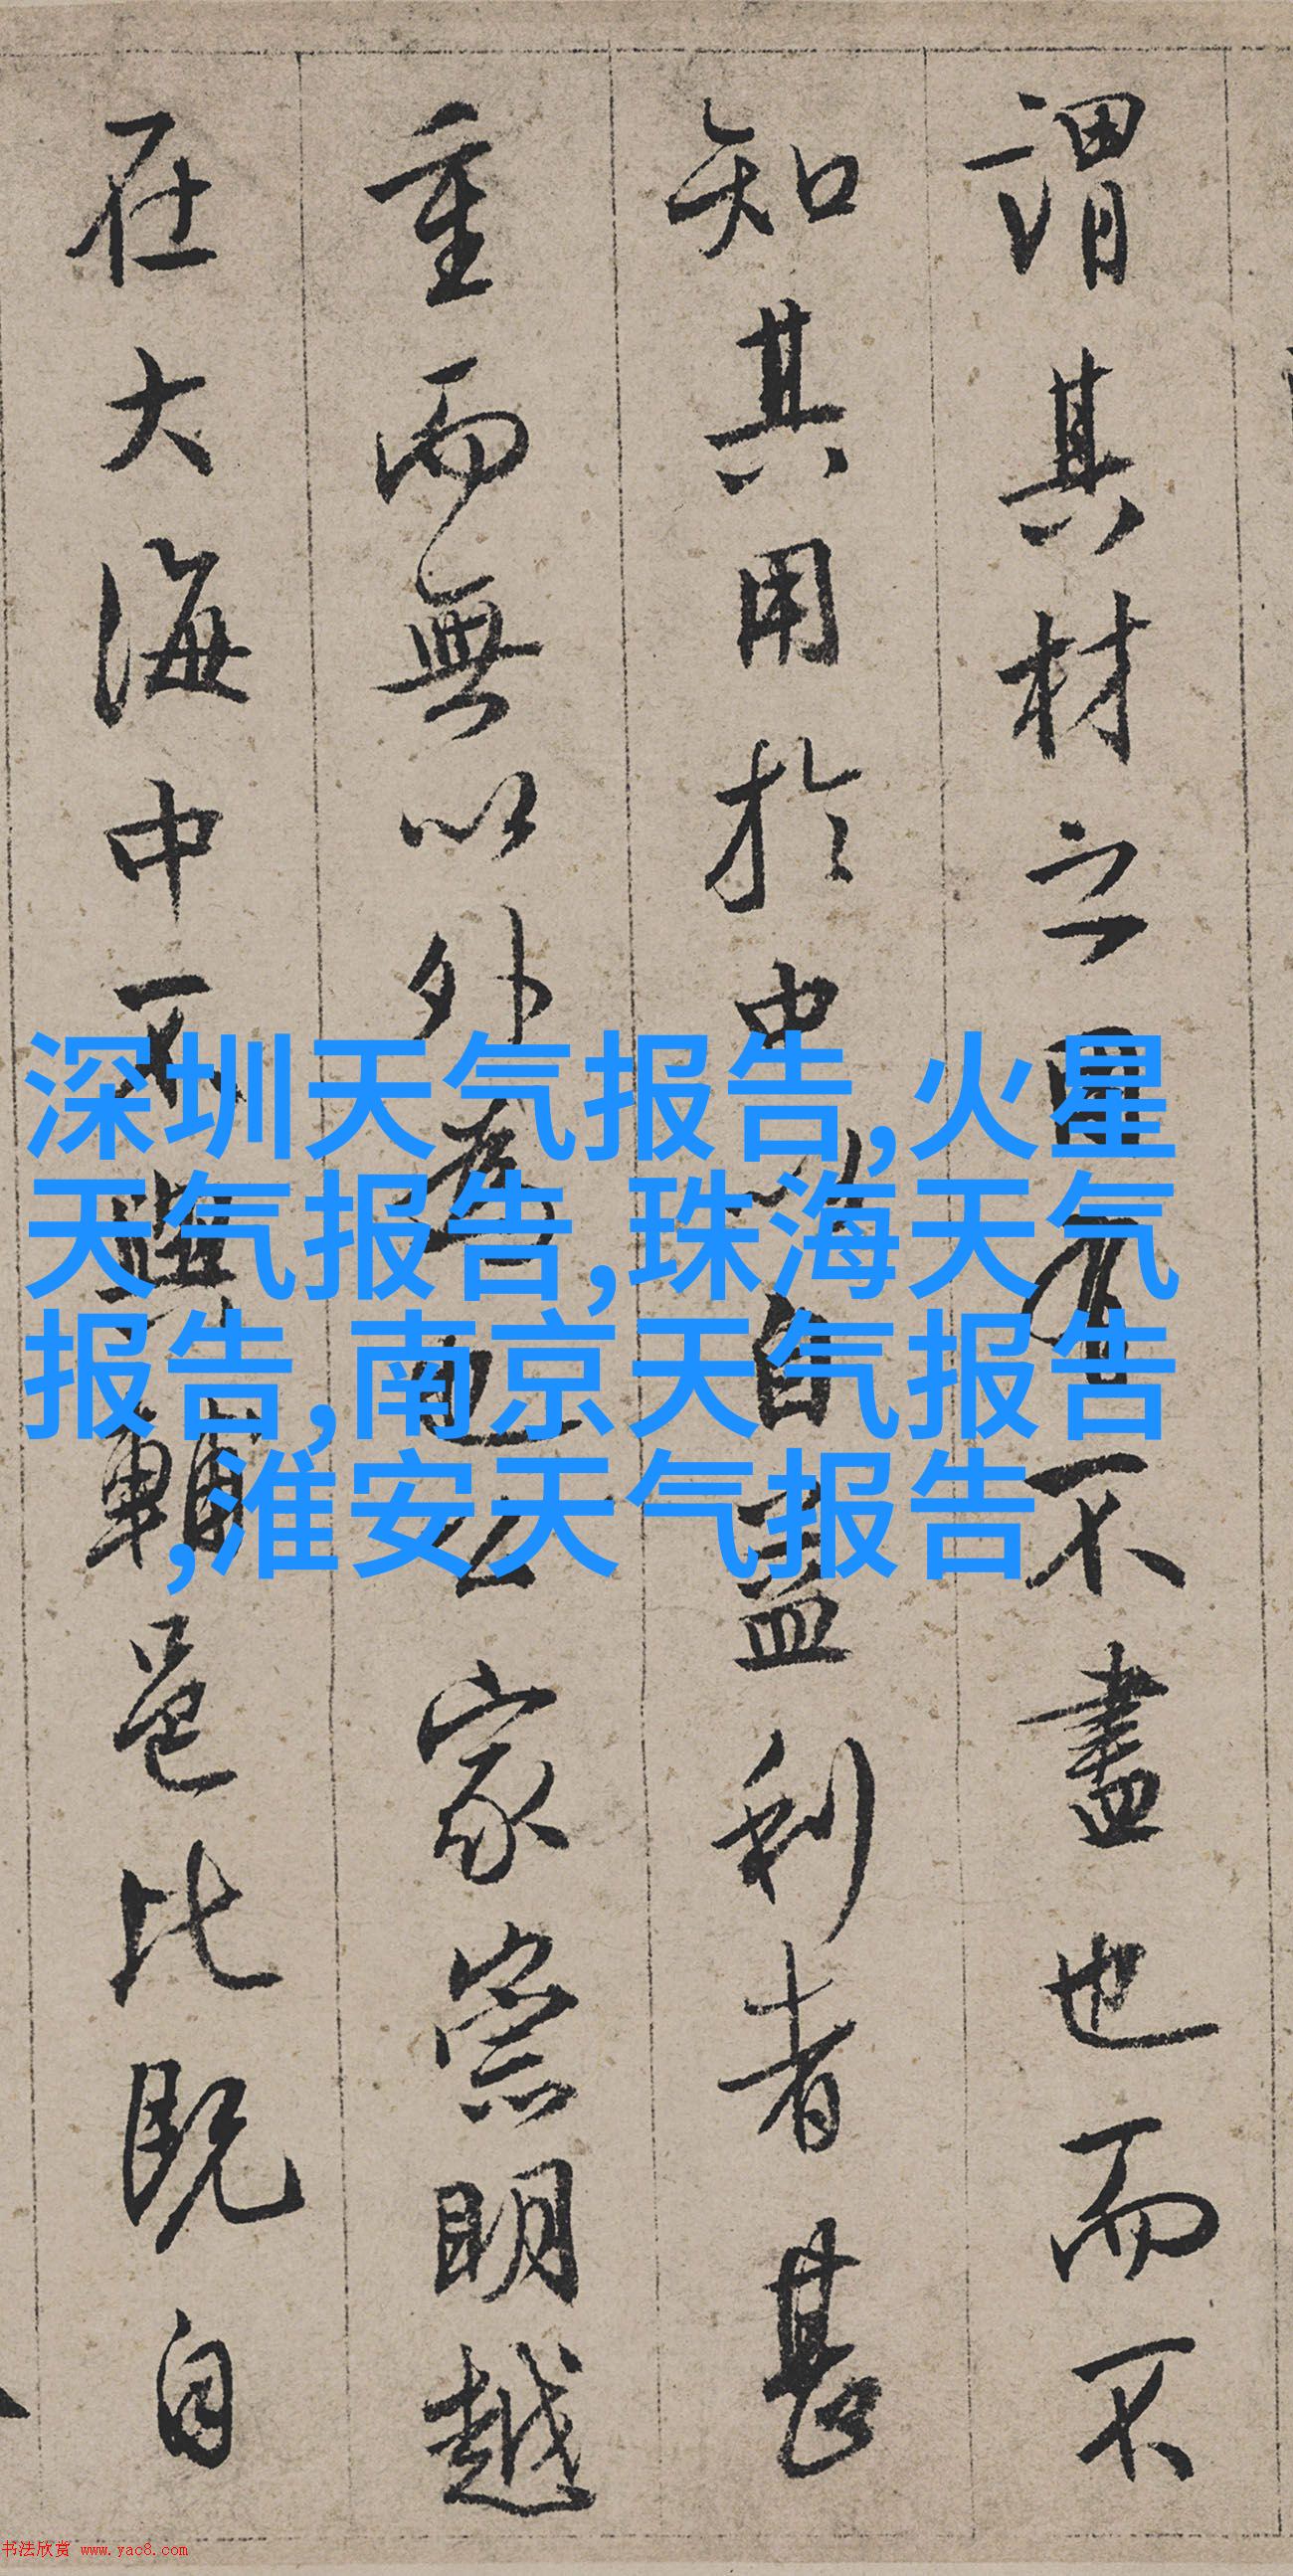 謂其材之不盡也而不
知其用於中以自益利者甚
重而無以外為也公家崇明越
在大海中不與輔邑比既自
深圳天气报告,火星
天气报告,珠海天气
报告,南京天气报告
,淮安天气报告
书法欣赏 www.yac8.com